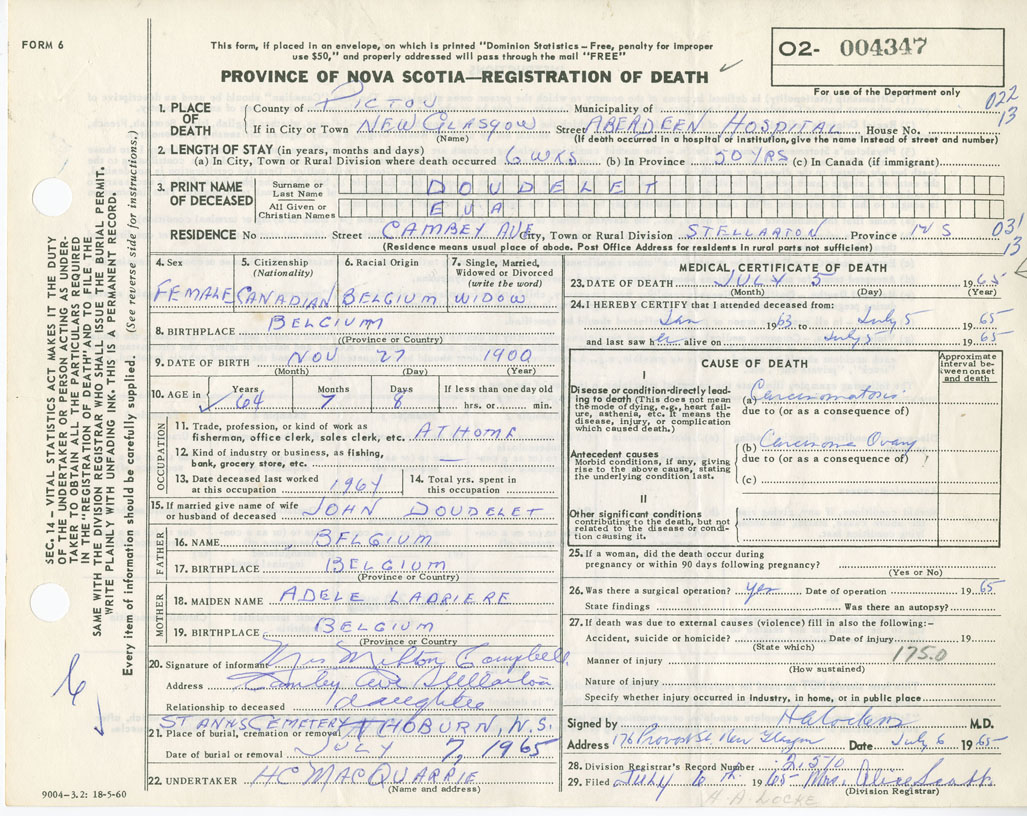 FORM 6
This form, if placed in an envelope, on which is printed "Dominion Statistics – Free, penalty for improper
use $50," and properly addressed will pass through the mail "FREE"
PROVINCE OF NOVA SCOTIA—REGISTRATION OF DEATH
O2- 004347
For use of the Department only
022
13
1. PLACE OF DEATH
County of PICTOU Municipality of
If in City or Town NEW GLASGOW Street ABERDEEN HOSPITAL House No.
(Name) (If death occurred in a hospital or institution, give the name instead of street and number)
2. LENGTH OF STAY (in years, months and days)
(a) In City, Town or Rural Division where death occurred 6 WKS (b) In Province 50 YRS (c) In Canada (if immigrant)
3. PRINT NAME OF DECEASED
Surname or Last Name DOUDELET
All Given or Christian Names EVA
RESIDENCE No Street CAMBEY AVE City, Town or Rural Division STELLARTON Province N S
031
13
(Residence means usual place of abode. Post Office Address for residents in rural parts not sufficient)
4. Sex
FEMALE
5. Citizenship (Nationality)
CANADIAN
6. Racial Origin
BELGIUM
7. Single, Married, Widowed or Divorced (write the word)
WIDOW
8. BIRTHPLACE BELGIUM
((Province or Country)
9. DATE OF BIRTH NOV 27 1900
(Month) (Day) (Year)
10. AGE in
Years Months Days If less than one day old
64 7 8 hrs. or min.
OCCUPATION
11. Trade, profession, or kind of work as
fisherman, office clerk, sales clerk, etc. AT HOME
12. Kind of industry or business, as fishing,
bank, grocery store, etc. —
13. Date deceased last worked at this occupation 1964
14. Total yrs. spent in this occupation
15. If married give name of wife
or husband of deceased JOHN DOUDELET
FATHER
16. NAME BELGIUM
17. BIRTHPLACE BELGIUM
(Province or Country)
MOTHER
18. MAIDEN NAME ADELE LADRIERE
19. BIRTHPLACE BELGIUM
(Province or Country)
20. Signature of informant Mrs Milton Campbell
Address Ave Stellarton
Relationship to deceased daughter
ST ANNS CEMETERY THOBURN, N.S.
21. Place of burial, cremation or removal
Date of burial or removal JULY 7, 1965
22. UNDERTAKER HC MACQUARRIE
(Name and address)
9004-3.2: 18-5-60
MEDICAL CERTIFICATE OF DEATH
23. DATE OF DEATH JULY 5 1965
(Month) (Day) (Year)
24. I HEREBY CERTIFY that I attended deceased from:
Jan 1963 to July 5 1965
and last saw her alive on July 5 1965
CAUSE OF DEATH
Approximate interval between onset and death
I
Disease or condition directly leading to death (This does not mean the mode of dying, e.g., heart failure, asthenia, etc. It means the disease, injury, or complication which caused death.)
(a) Carcinomatosis
due to (or as a consequence of)
Antecedent causes
Morbid conditions, if any, giving rise to the above cause, stating the underlying condition last.
(b) Carcinoma Ovary
due to (or as a consequence of)
(c)
II
Other significant conditions
contributing to the death, but not related to the disease or condition causing it.
25. If a woman, did the death occur during
pregnancy or within 90 days following pregnancy?
(Yes or No)
26. Was there a surgical operation? yes Date of operation 1965
State findings Was there an autopsy?
27. If death was due to external causes (violence) fill in also the following:–
Accident, suicide or homicide? Date of injury 19
(State which)
175.0
Manner of injury
(How sustained)
Nature of injury
Specify whether injury occurred in industry, in home, or in public place
Signed by M.D.
Address 176 Provost St New Glasgow Date July 6 1965
28. Division Registrar's Record Number 2,570
29. Filed July 6th 1965 Mrs. Alice Scott
(Division Registrar)
H. A. LOCKE
SEC. 14 – VITAL STATISTICS ACT MAKES IT THE DUTY
OF THE UNDERTAKER OR PERSON ACTING AS UNDER-
TAKER TO OBTAIN ALL THE PARTICULARS REQUIRED
IN THE "REGISTRATION OF DEATH" AND TO FILE THE
SAME WITH THE DIVISION REGISTRAR WHO SHALL ISSUE THE BURIAL PERMIT.
WRITE PLAINLY WITH UNFADING INK. THIS IS A PERMANENT RECORD.
Every item of information should be carefully supplied. (See reverse side for instructions.)